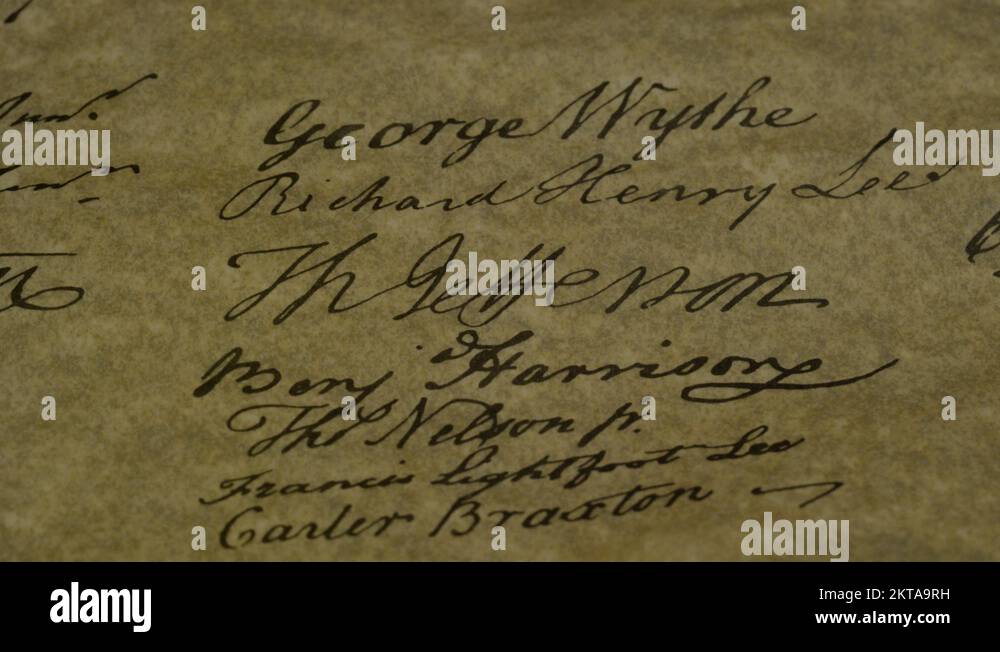 George Wythe
Richard Henry Lee
Th Jefferson
Benj Harrison
Thos Nelson jr.
Francis Lightfoot Lee
Carter Braxton
alamy
a
alamy
Image ID: 2KTA9RH
www.alamy.com